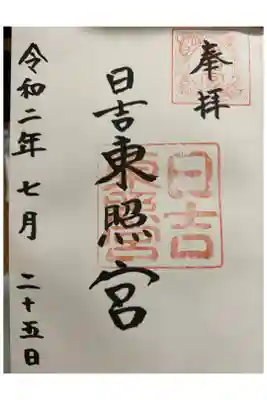 奉拝
日吉東照宮
日吉
東照宮
令和二年七月二十五日